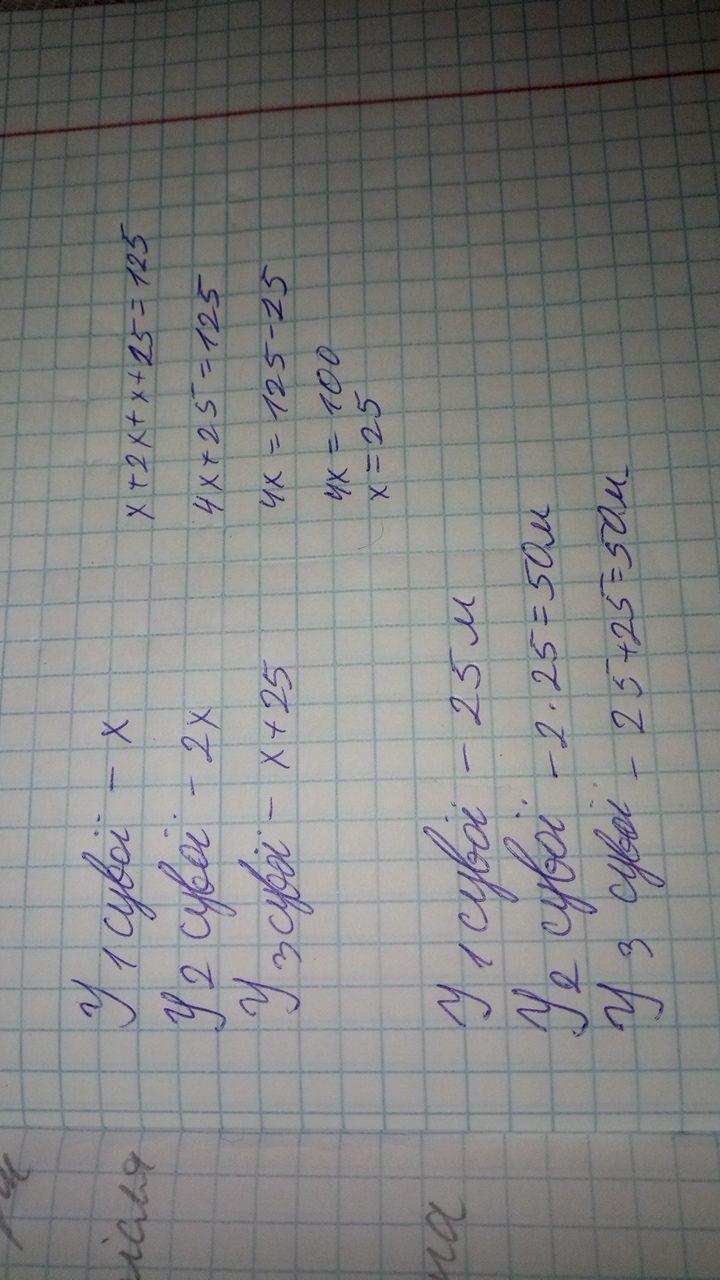 У 1 сувої – x
У 2 сувої – 2x
У 3 сувої – x + 25
x + 2x + x + 25 = 125
4x + 25 = 125
4x = 125 - 25
4x = 100
x = 25
У 1 сувої – 25 м
У 2 сувої – 2 · 25 = 50м
У 3 сувої – 25 + 25 = 50м